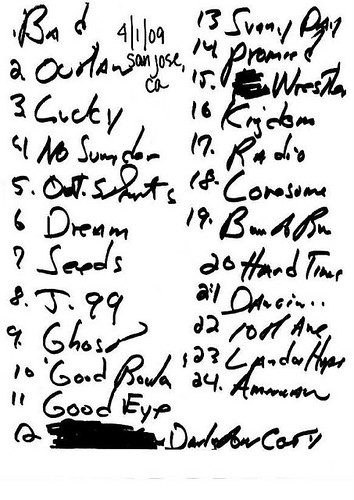 1. Bad
4/1/09
san jose,
ca
2 Outlaw
3. Lucky
4 No Surrdar
5. Out. Streets
6 Dream
7 Seeds
8. J. 99
9. Ghost
10 Good Rowla
11 Good Eye
12 Darknow City
13 Sunny Day
14 Promised
15. Wrestler
16 Kingdom
17. Radio
18. Lonesome
19. Bun to Run
20 Hard Time
21 Dancin...
22 10th Ave
23 Landa Hope
24. American